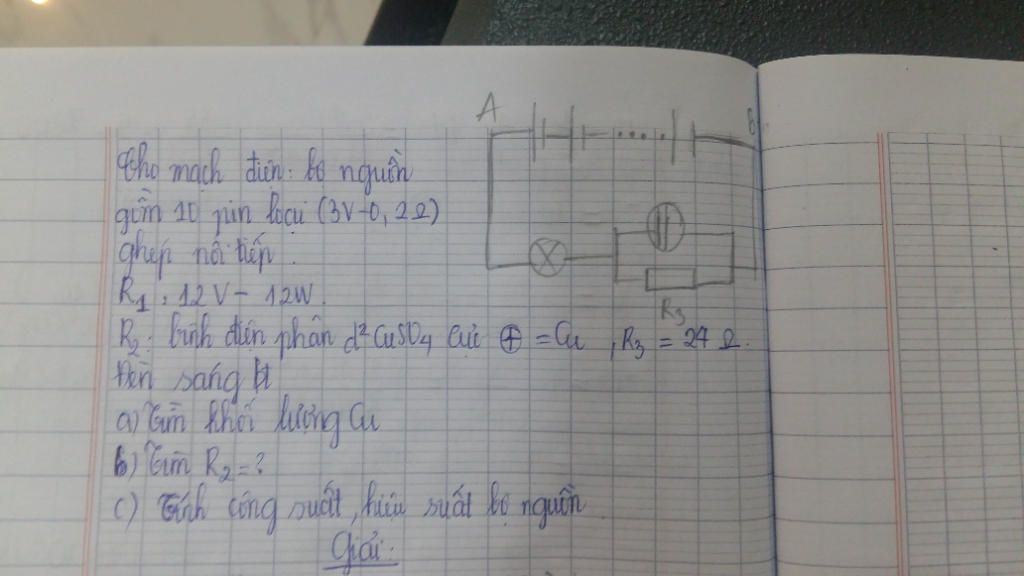 A
B
Cho mạch điện: bộ nguồn
gồm 10 pin loại (3V-0,2Ω)
ghép nối tiếp.
R1: 12V - 12W.
R3
R2: bình điện phân d² CuSO4 cực ⊕ = Cu, R3 = 24 Ω.
Đèn sáng bt
a) Tìm khối lượng Cu
b) Tìm R2 = ?
c) Tính công suất, hiệu suất bộ nguồn
Giải: